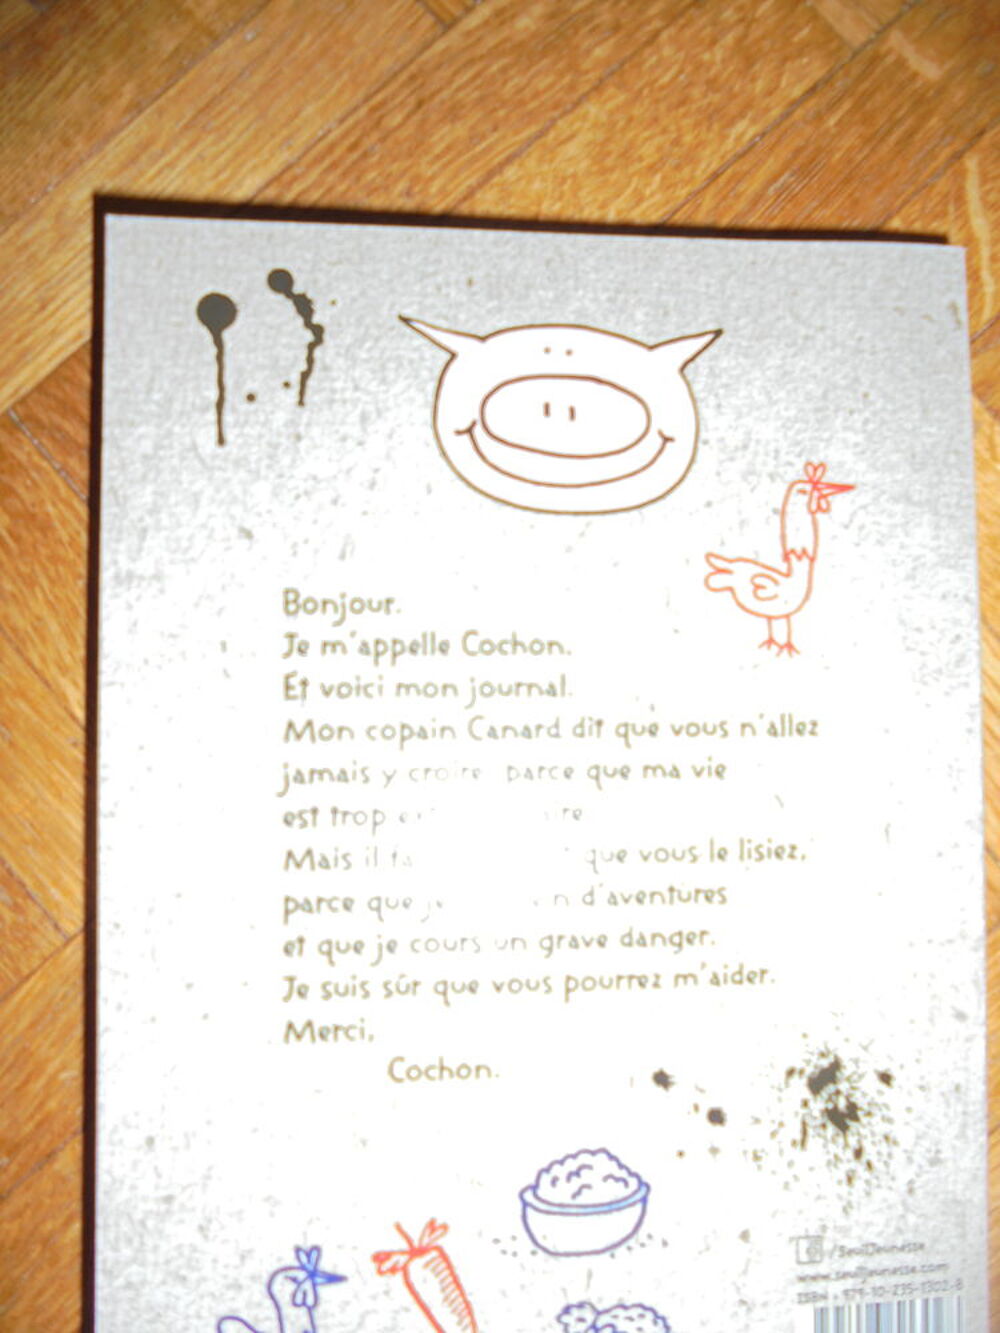 Bonjour.
Je m'appelle Cochon.
Et voici mon journal.
Mon copain Canard dit que vous n'allez
jamais y croire parce que ma vie
est trop
Mais il que vous le lisiez,
parce que d'aventures
et que je cours un grave danger.
Je suis sûr que vous pourrez m'aider.
Merci,
Cochon.
/SeuilJeunesse
www.seuiljeunesse.com
ISBN : 979-10-235-1302-8